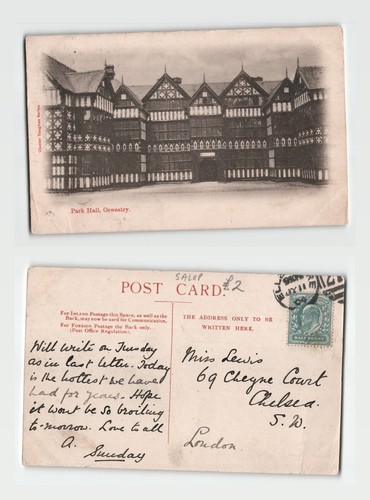 Park Hall, Oswestry.
SALOP
£2
POST CARD.
For Inland Postage this Space, as well as the
Back, may now be used for Communication.
For Foreign Postage the Back only.
(Post Office Regulation).
THE ADDRESS ONLY TO BE
WRITTEN HERE.
Will write on Tuesday
as in last letter. Today
is the hottest we have
had for years. Hope
it wont be so broiling
to-morrow. Love to all
A.
Sunday
Miss Lewis
69 Cheyne Court
Chelsea.
S.W.
London.
HALF PENNY